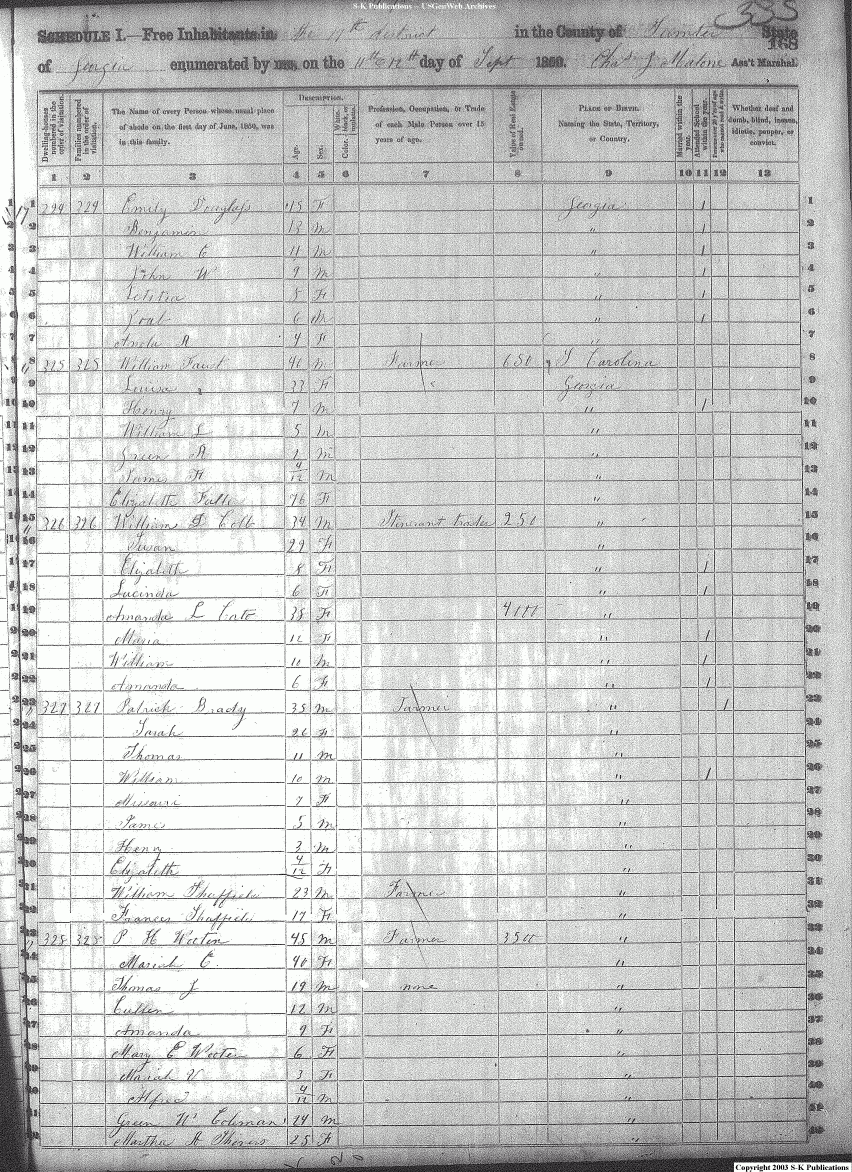 S-K Publications – USGenWeb Archives
335
SCHEDULE I.—Free Inhabitants in the 17th district in the County of Sumter State
168
of Georgia enumerated by me, on the 11th & 12th day of Sept 1850. Chas J Malone Ass't Marshal.
Dwelling-houses numbered in the order of visitation. Families numbered in the order of visitation. The Name of every Person whose usual place of abode on the first day of June, 1850, was in this family. Description. Age. Sex. Color, White, black, or mulatto. Profession, Occupation, or Trade of each Male Person over 15 years of age. Value of Real Estate owned. Place of Birth. Naming the State, Territory, or Country. Married within the year. Attended School within the year. Persons over 20 y'rs of age who cannot read & write. Whether deaf and dumb, blind, insane, idiotic, pauper, or convict.
1 2 3 4 5 6 7 8 9 10 11 12 13
1 324 324 Emily Douglass 15 F Georgia / 1
2 Benjamin 13 M " / 2
3 William C 11 M " / 3
4 John W 9 M " / 4
5 Letitia 8 F " / 5
6 6 M " / 6
7 A 4 F " 7
8 325 325 William Faust 40 M Farmer 650 S Carolina 8
9 Louisa 33 F Georgia 9
10 Henry 7 M " / 10
11 William L 5 M " 11
12 Green A 2 M " 12
13 James H 4/12 M " 13
14 Elizabeth Fuller 76 F " 14
15 326 326 William D Cobb 34 M Itinerant trader 250 " 15
16 Susan 29 F " 16
17 Elizabeth 8 F " / 17
18 Lucinda 6 F " / 18
19 Amanda L Cato 35 F 4000 " 19
20 Maria 12 F " / 20
21 William 10 M " / 21
22 Amanda 6 F " / 22
23 327 327 Patrick Brady 35 M Farmer " / 23
24 Sarah 26 F " 24
25 Thomas 11 M " 25
26 William 10 M " / 26
27 Missouri 7 F " 27
28 James 5 M " 28
29 Henry 3 M " 29
30 Elizabeth 4/12 F " 30
31 William Sheffield 23 M Farmer " 31
32 Frances Sheffield 17 F " 32
33 328 328 P H Wooten 45 M Farmer 3500 " 33
34 Mariah C. 40 F " 34
35 Thomas J 19 M none " 35
36 Cullen 12 M " 36
37 Amanda 9 F " 37
38 Mary E Wooten 6 F " 38
39 Mariah V 3 F " 39
40 Alfred 4/12 M " 40
41 Green W Coleman 24 M " 41
42 Martha A 25 F " 42
Copyright 2003 S-K Publications